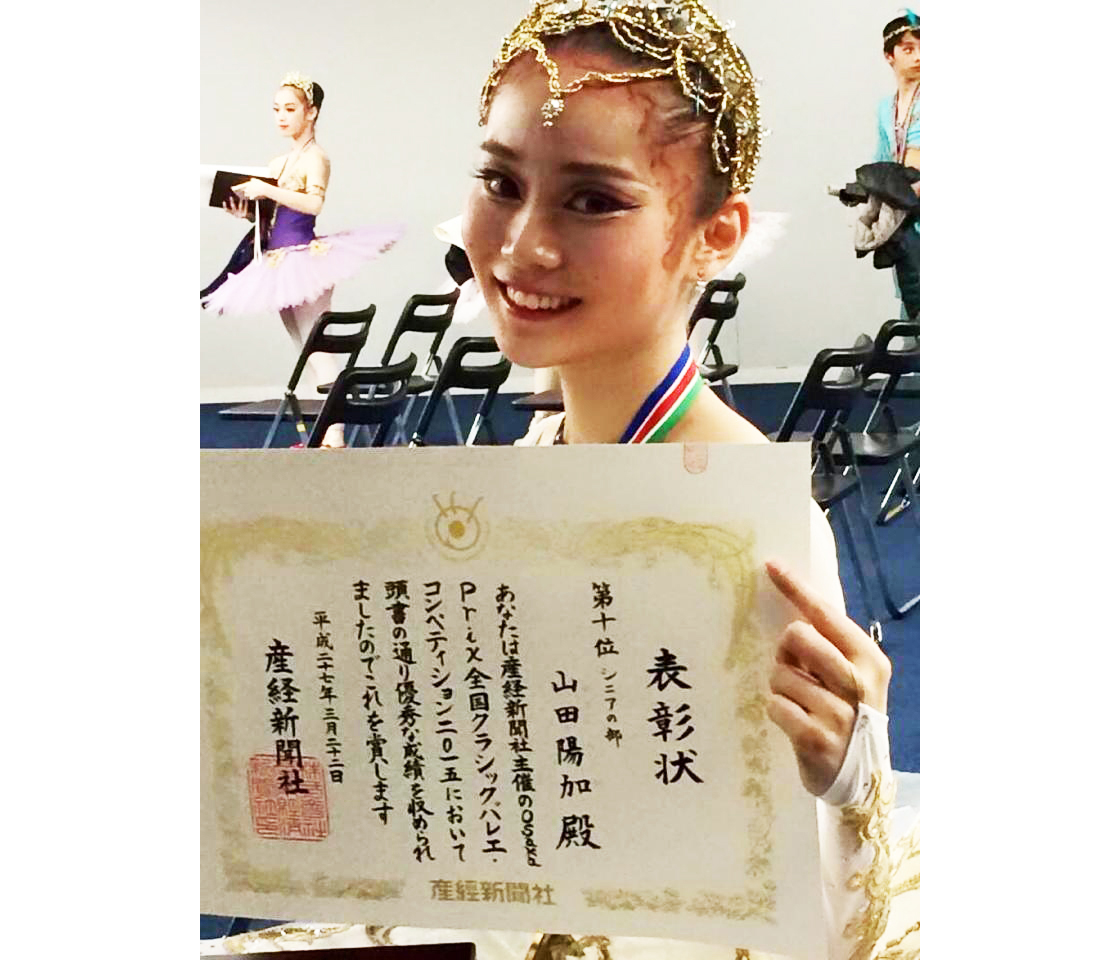 表彰状
第十位 シニアの部
山田陽加殿
あなたは産経新聞社主催のOsaka
Prix全国クラシックバレエ・
コンペティション二〇一五において
頭書の通り優秀な成績を収められ
ましたのでこれを賞します
平成二十七年三月二十二日
産経新聞社
産經新聞社